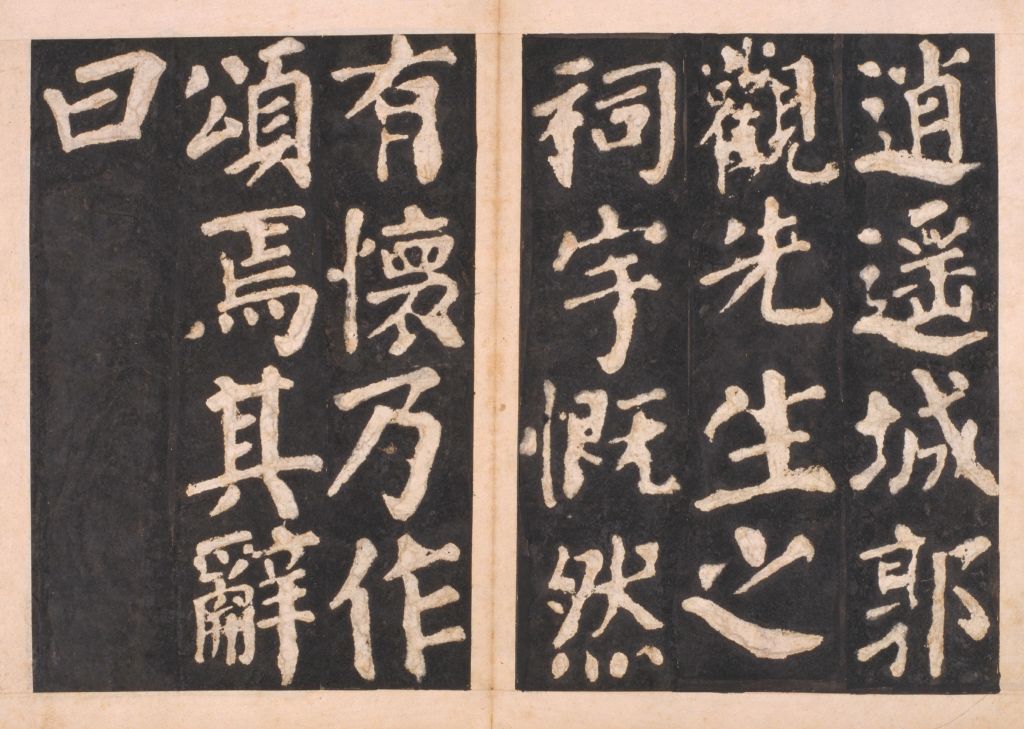 逍遥城郭
觀先生之
祠宇慨然
有懷乃作
頌焉其辭
曰